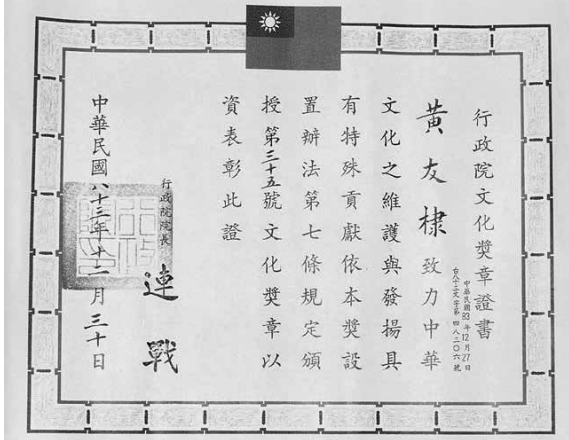 行政院文化獎章證書
中華民國83年12月27日
台八十三文字第四八二〇六號
黃友棣致力中華
文化之維護與發揚具
有特殊貢獻依本獎設
置辦法第七條規定頒
授第三十五號文化獎章以
資表彰此證
行政院院長
連戰
中華民國八十三年十二月三十日